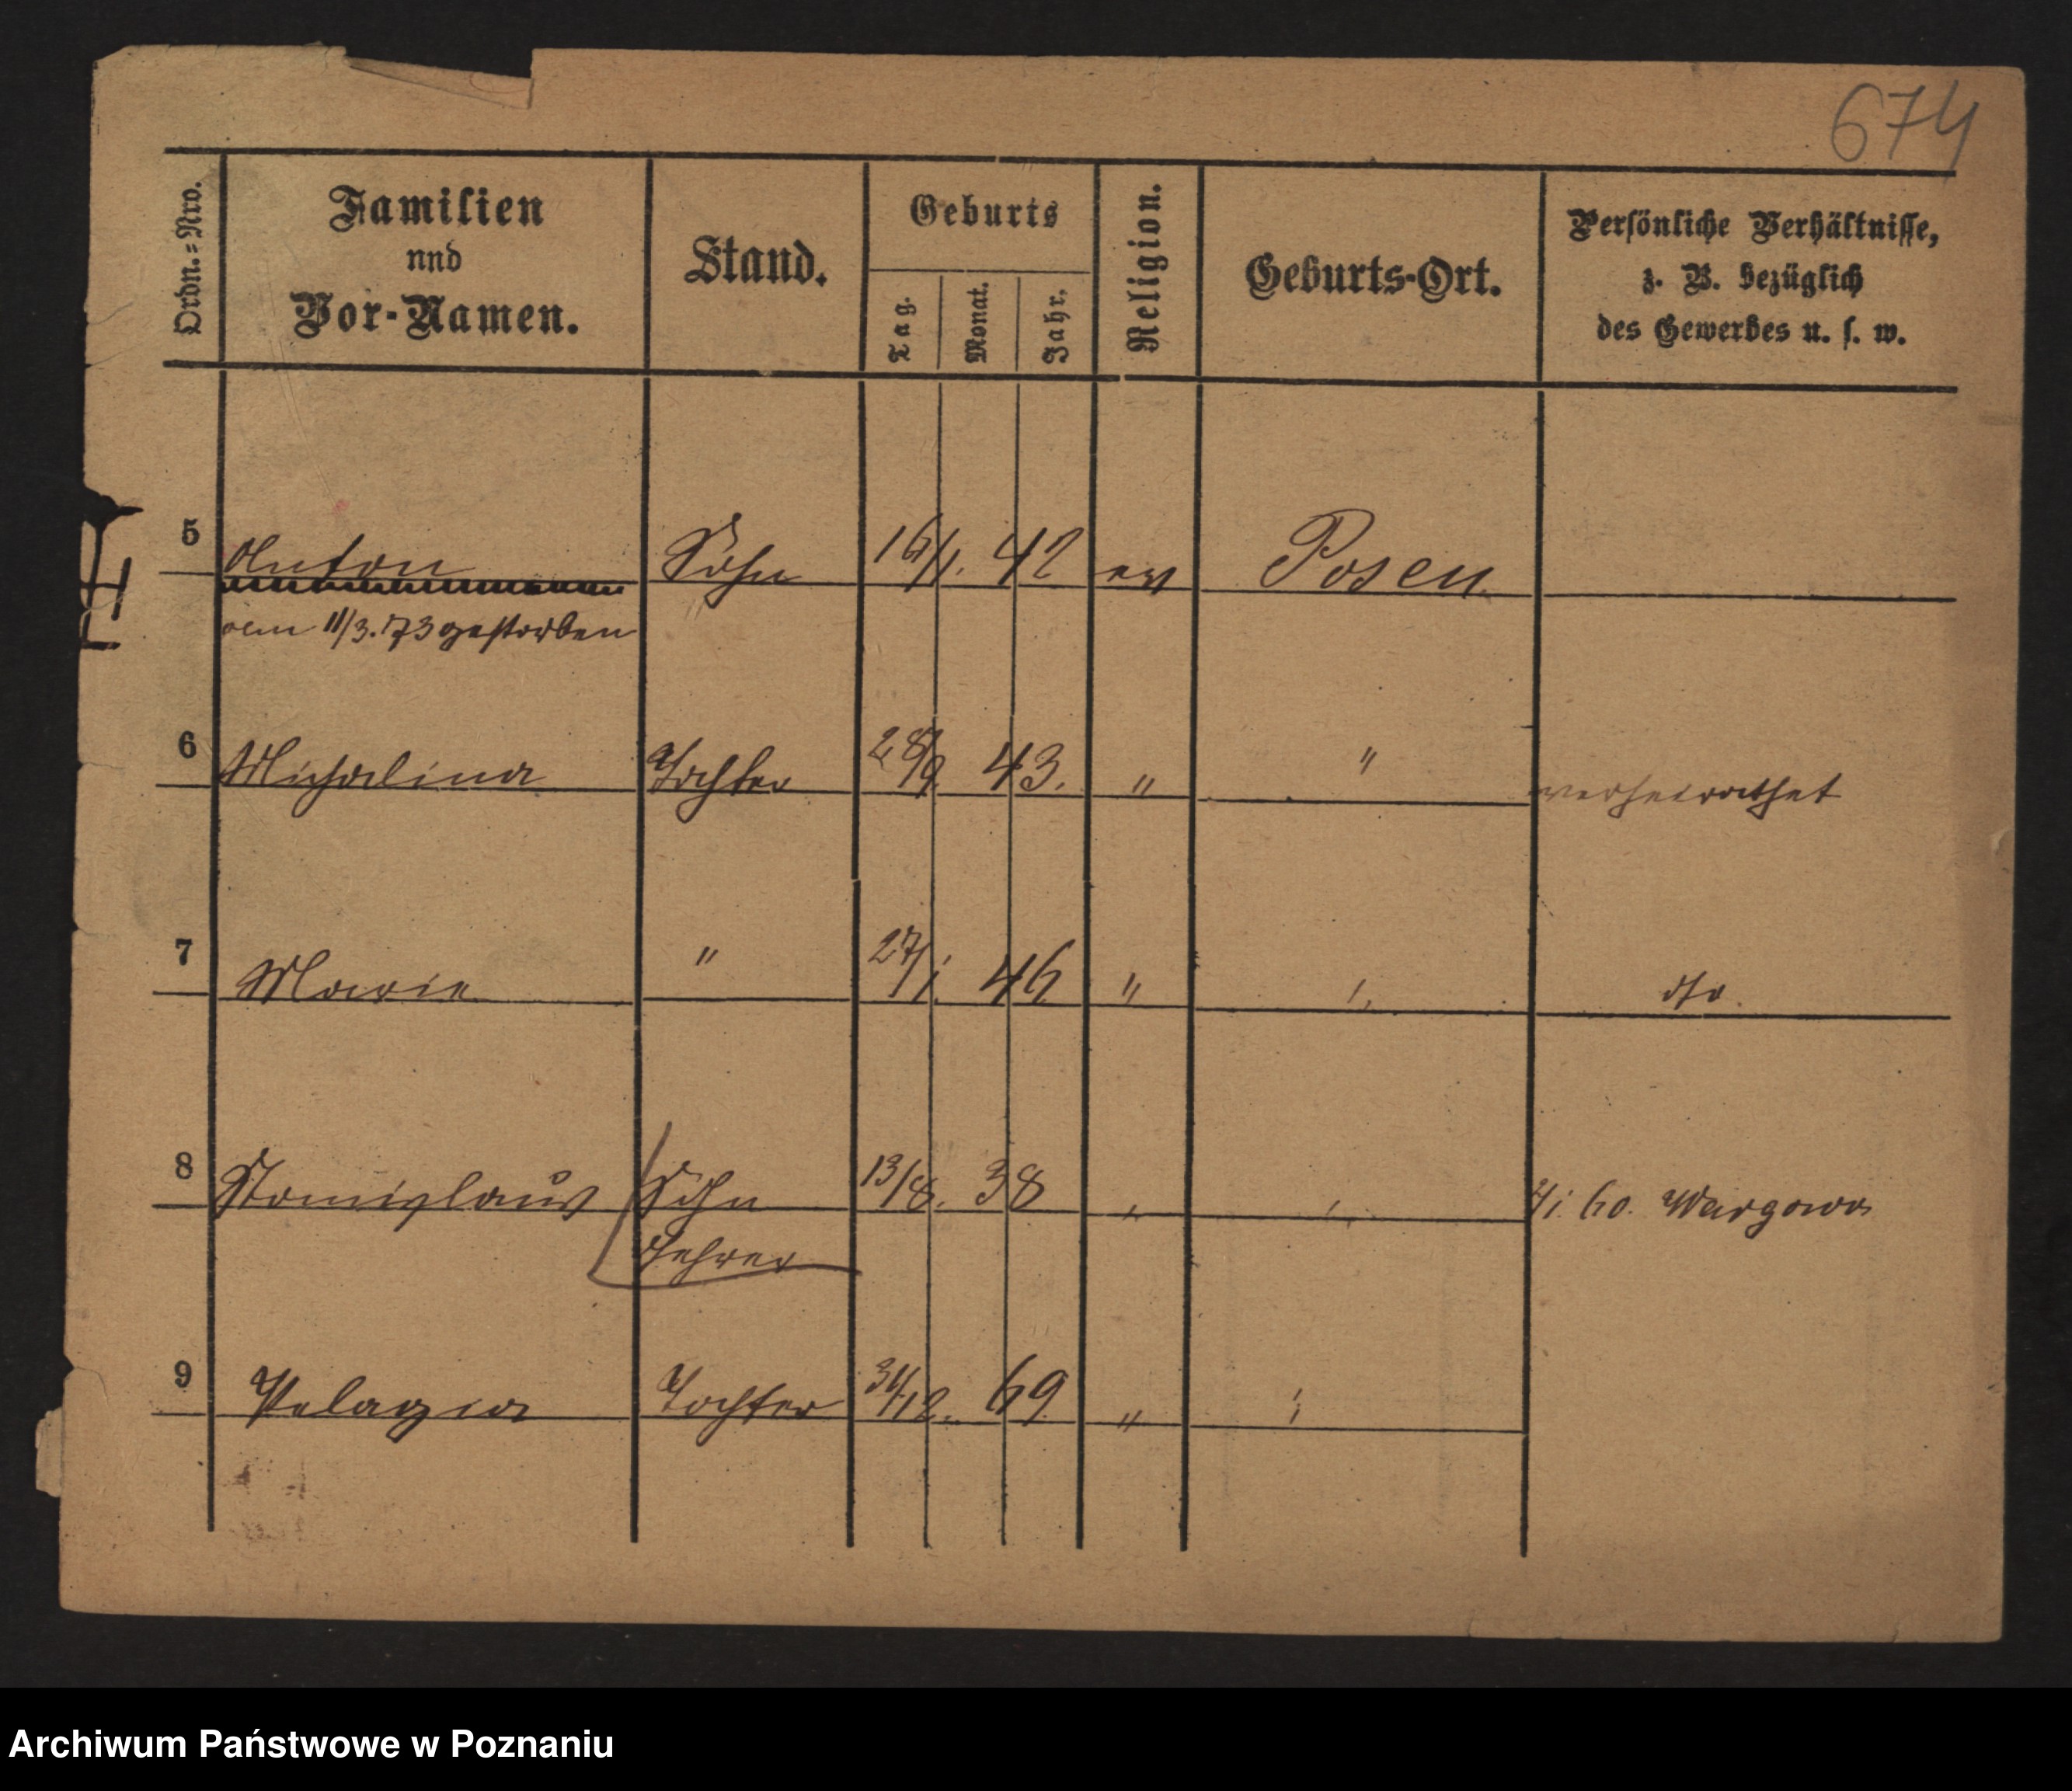 674
Ordn.=Nro.
Familien
nnd
Vor-Namen.
Stand.
Geburts
Tag.
Monat.
Jahr.
Religion.
Geburts-Ort.
Persönliche Verhältnisse,
z. B. bezüglich
des Gewerbes u. s. w.
5 Anton Sohn 16/1. 42 Posen
am 11/3.73 gestorben
6 Michalina Tochter 28/9. 43. " " verheirathet
7 Marie " 27/1. 46 " " dto.
8 Stanislaus Sohn 13/8. 38 " " Wargowo
Lehrer
9 Pelagia Tochter 31/12. 69 " "
Archiwum Państwowe w Poznaniu